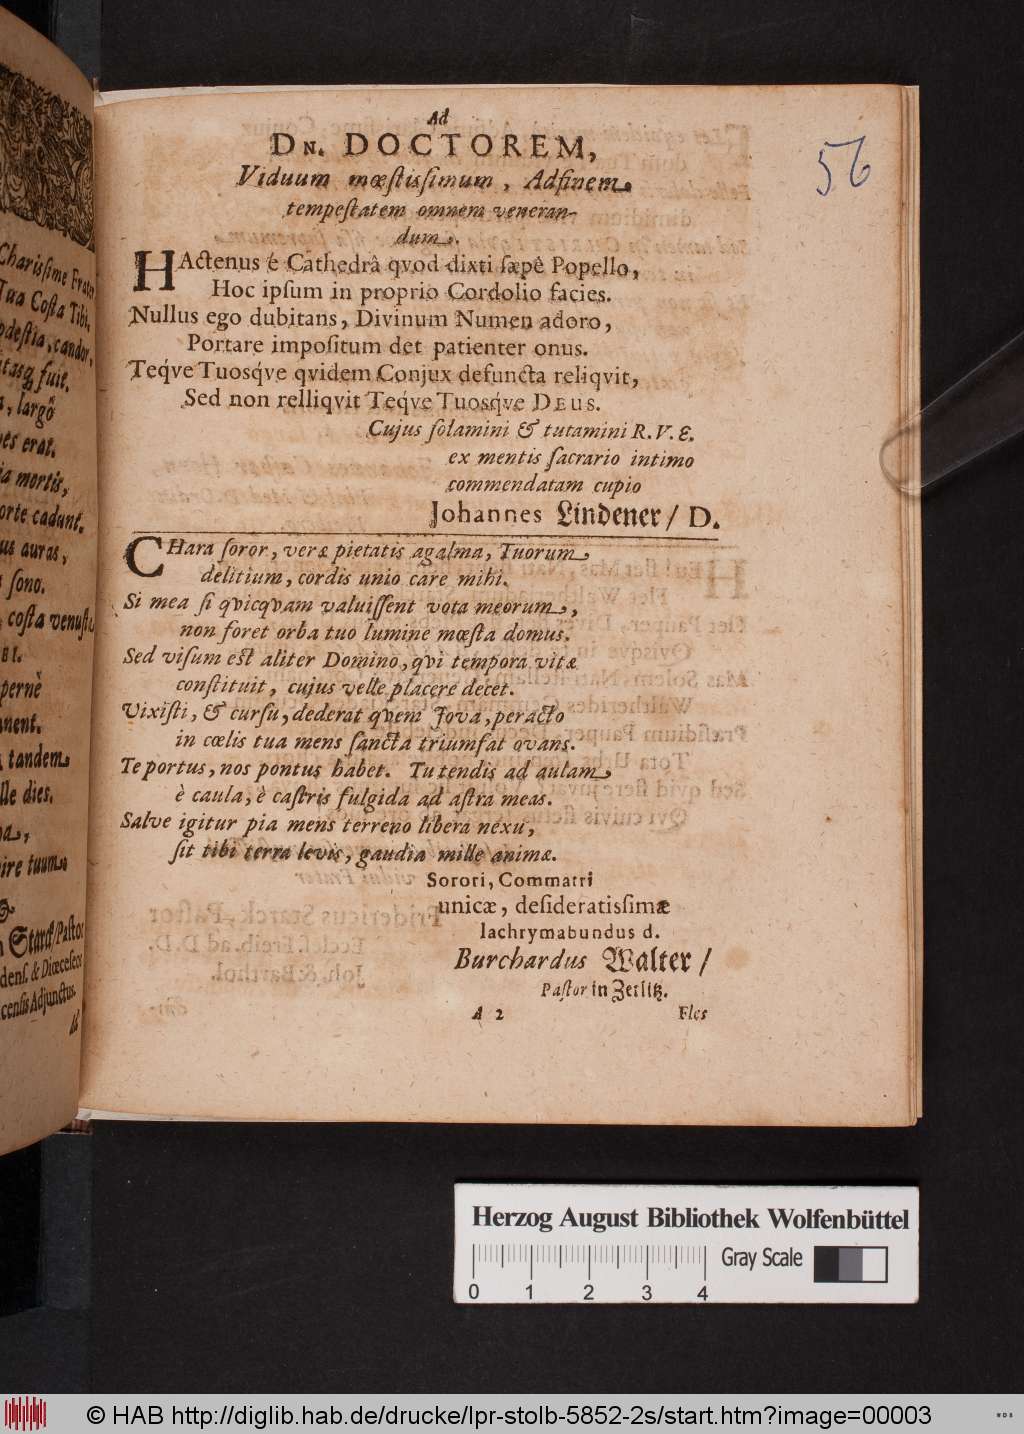 Charissime Frater
Tua Costa Tibi,
candor,
fuit.
, largô
erat.
mortis,
orte cadunt.
us auras,
sono.
costa venusta
BI.
pernè
anent.
tandem
lle dies.
ire tuum
Starck/Pastor
dens. & Diœceseos
censis Adjunctus.
Ad
DN. DOCTOREM,
Viduum mœstissimum, Adfinem
tempestatem omnem veneran-
dum.
HActenus è Cathedrâ qvod dixti sæpè Popello,
Hoc ipsum in proprio Cordolio facies.
Nullus ego dubitans, Divinum Numen adoro,
Portare impositum det patienter onus.
Teq́ve Tuosq́ve qvidem Conjux defuncta reliqvit,
Sed non relliqvit Teq́ve Tuosq́ve DEUS.
Cujus solamini & tutamini R. V. E.
ex mentis sacrario intimo
commendatam cupio
Johannes Lindener / D.
CHara soror, veræ pietatis agalma, Tuorum
delitium, cordis unio care mihi.
Si mea si qvicqvam valuissent vota meorum,
non foret orba tuo lumine mœsta domus.
Sed visum est aliter Domino, qvi tempora vitæ
constituit, cujus velle placere decet.
Vixisti, & cursu, dederat qvem Jova, peracto
in cœlis tua mens sancta triumfat ovans.
Te portus, nos pontus habet. Tu tendis ad aulam
è caula, è castris fulgida ad astra meas.
Salve igitur pia mens terreno libera nexu,
sit tibi terra levis, gaudia mille animæ.
Sorori, Commatri
unicæ, desideratissimæ
lachrymabundus d.
Burchardus Walter /
Pastor in Zerlitz.
A 2 Fles
56
Herzog August Bibliothek Wolfenbüttel
Gray Scale
0 1 2 3 4
© HAB http://diglib.hab.de/drucke/lpr-stolb-5852-2s/start.htm?image=00003